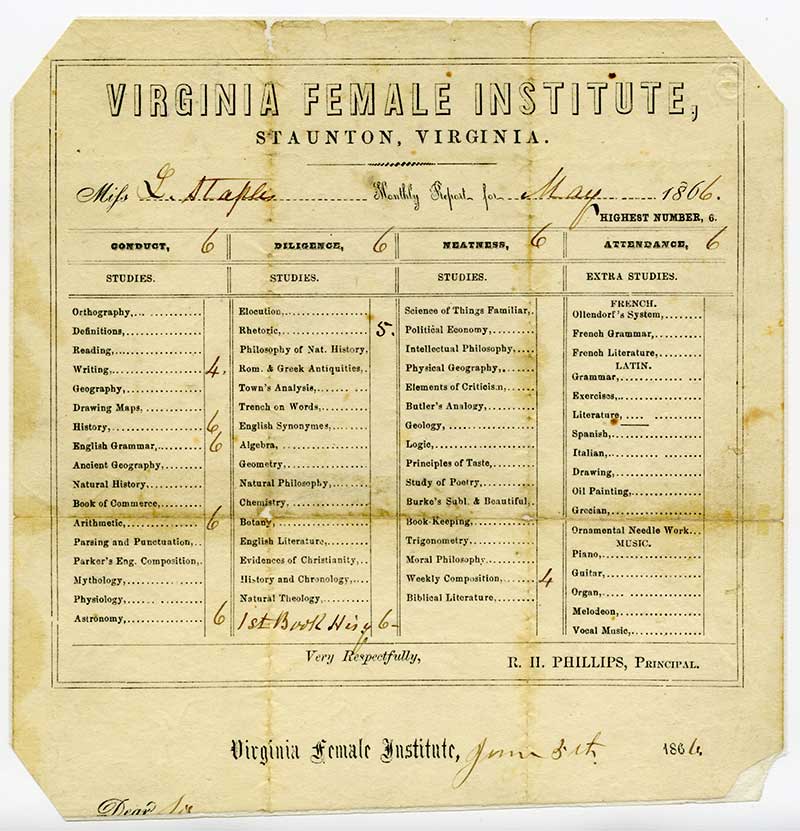 VIRGINIA FEMALE INSTITUTE,
STAUNTON, VIRGINIA.
Miss L. Staples Monthly Report for May 1866.
HIGHEST NUMBER, 6.
CONDUCT, 6 DILIGENCE, 6 NEATNESS, 6 ATTENDANCE, 6
STUDIES. STUDIES. STUDIES. EXTRA STUDIES.
Orthography,
Definitions,
Reading,
Writing, 4.
Geography,
Drawing Maps,
History, 6
English Grammar, 6
Ancient Geography,
Natural History,
Book of Commerce,
Arithmetic, 6
Parsing and Punctuation,
Parker's Eng. Composition,
Mythology,
Physiology,
Astronomy, 6
Elocution,
Rhetoric, 5.
Philosophy of Nat. History,
Rom. & Greek Antiquities,
Town's Analysis,
Trench on Words,
English Synonymes,
Algebra,
Geometry,
Natural Philosophy,
Chemistry,
Botany,
English Literature,
Evidences of Christianity,
History and Chronology,
Natural Theology,
1st Book 6
Science of Things Familiar,
Political Economy,
Intellectual Philosophy,
Physical Geography,
Elements of Criticism,
Butler's Analogy,
Geology,
Logic,
Principles of Taste,
Study of Poetry,
Burke's Subl. & Beautiful,
Book-Keeping,
Trigonometry,
Moral Philosophy,
Weekly Composition, 4
Biblical Literature,
FRENCH.
Ollendorf's System,
French Grammar,
French Literature,
LATIN.
Grammar,
Exercises,
Literature,
Spanish,
Italian,
Drawing,
Oil Painting,
Grecian,
Ornamental Needle Work
MUSIC.
Piano,
Guitar,
Organ,
Melodeon,
Vocal Music,
Very Respectfully, R. H. PHILLIPS, PRINCIPAL.
Virginia Female Institute, June 5th 1866.
Dear Sir